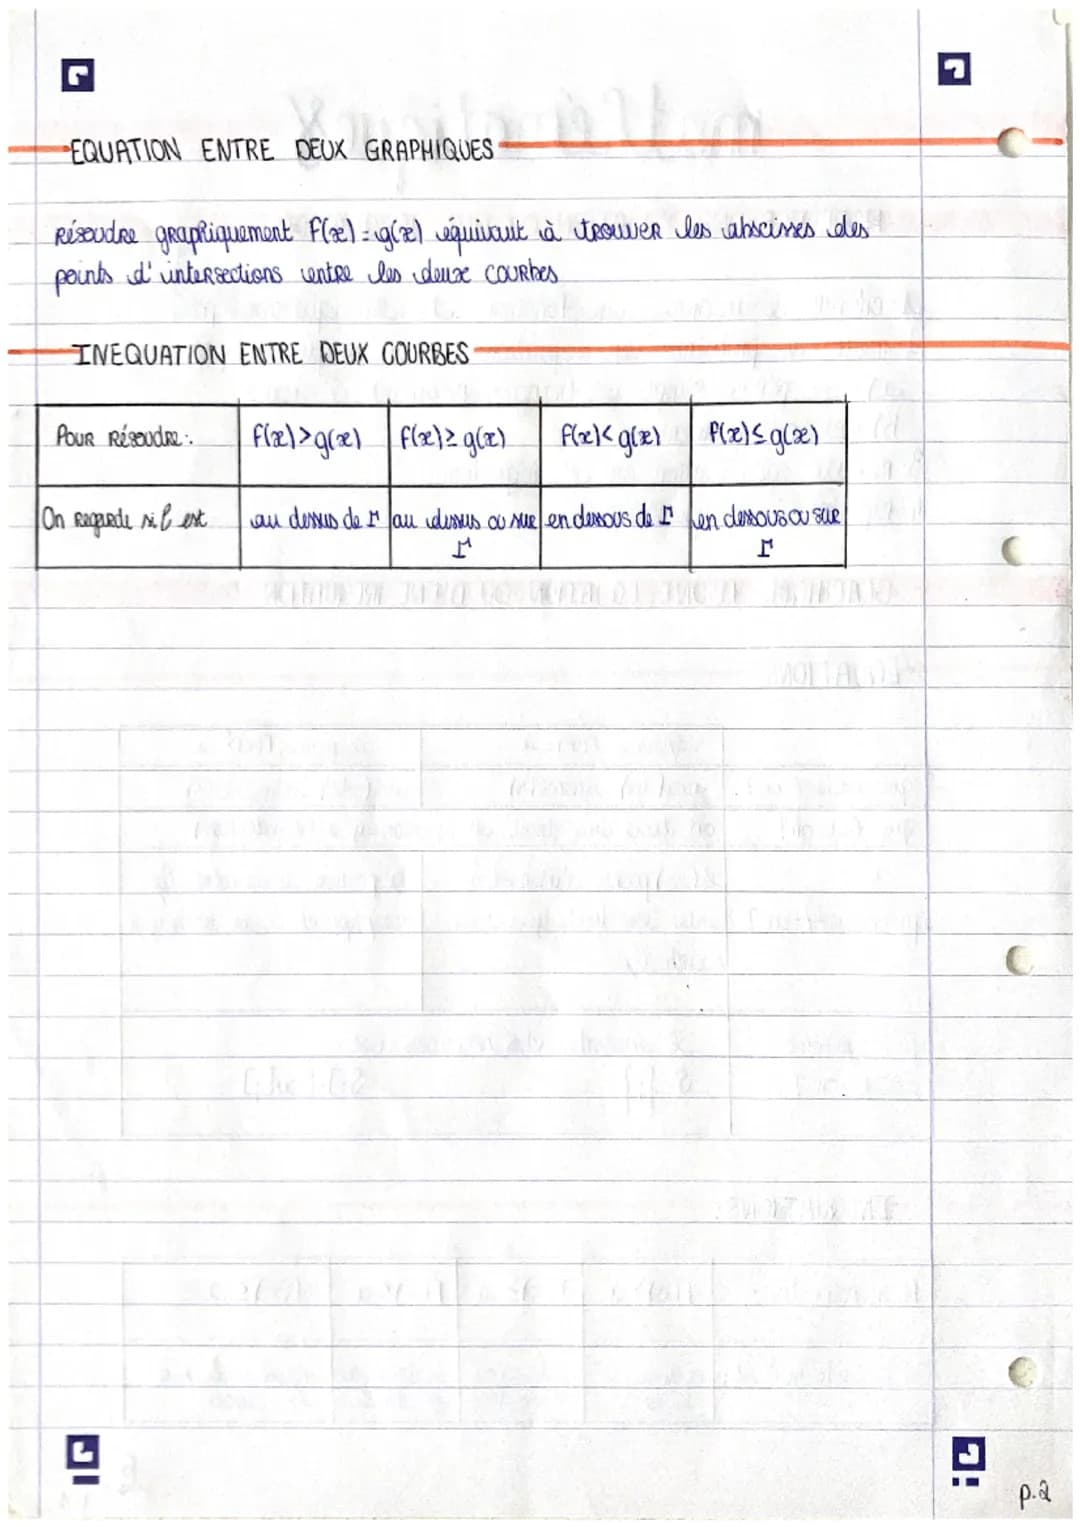 EQUATION ENTRE DEUX GRAPHIQUES
Résoudre graphiquement f(x) = g(x) équivaut à trouver les abscisses des
points d'intersections entre les deux courbes
INEQUATION ENTRE DEUX COURBES
Pour Résoudre : f(x) > g(x) f(x) ≥ g(x) f(x) < g(x) f(x) ≤ g(x)
On Regarde si ℓ est au dessus de Γ au dessus ou sur Γ en dessous de Γ en dessous ou sur Γ
p.2